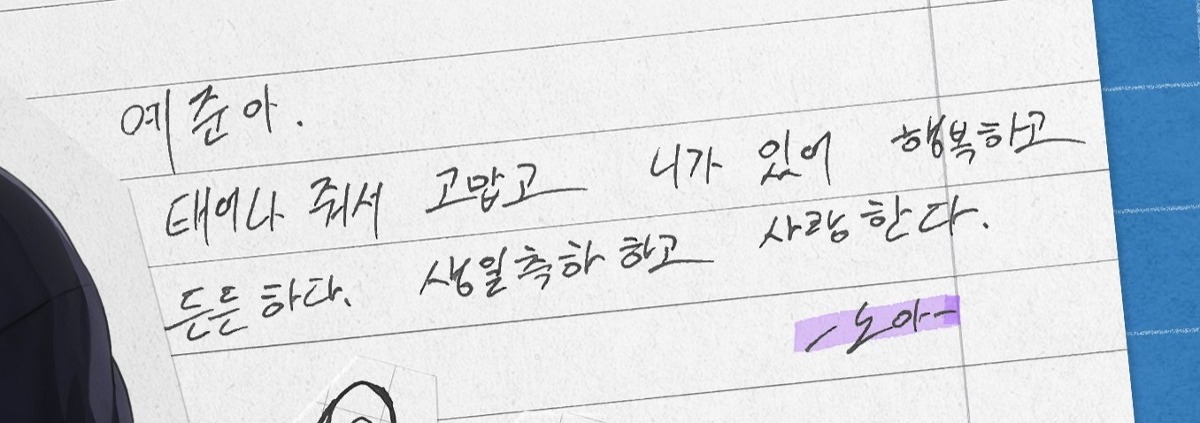 예준아.
태어나 줘서 고맙고 니가 있어 행복하고
든든하다. 생일축하하고 사랑한다.
- 노아 -